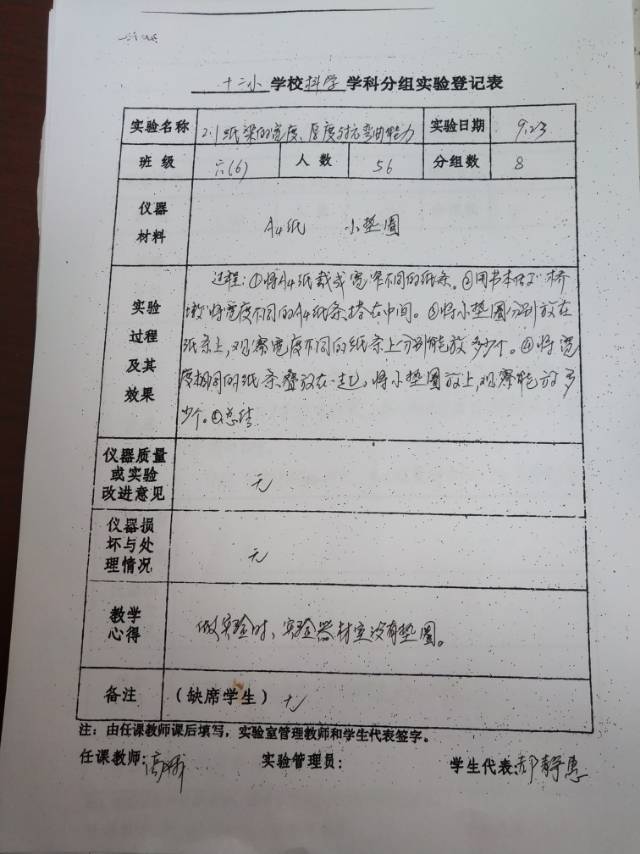 十二小 学校 科学 学科分组实验登记表
实验名称 2.1纸梁的宽度、厚度与抗弯曲能力 实验日期 9.23
班 级 六(6) 人 数 56 分组数 8
仪器材料 A4纸 小垫圈
实验过程及其效果
过程:①将A4纸裁成宽窄不同的纸条。②用书本做"桥
墩"将宽度不同的A4纸条搭在中间。③将小垫圈分别放在
纸条上,观察宽度不同的纸条上分别能放多少个。④将宽
度相同的纸条叠放在一起,将小垫圈放上,观察能放多
少个。⑤总结
仪器质量或实验改进意见 无
仪器损坏与处理情况 无
教学心得 做实验时、实验器材室没有垫圈。
备注 (缺席学生) 无
注:由任课教师课后填写,实验室管理教师和学生代表签字。
任课教师: 实验管理员: 学生代表: